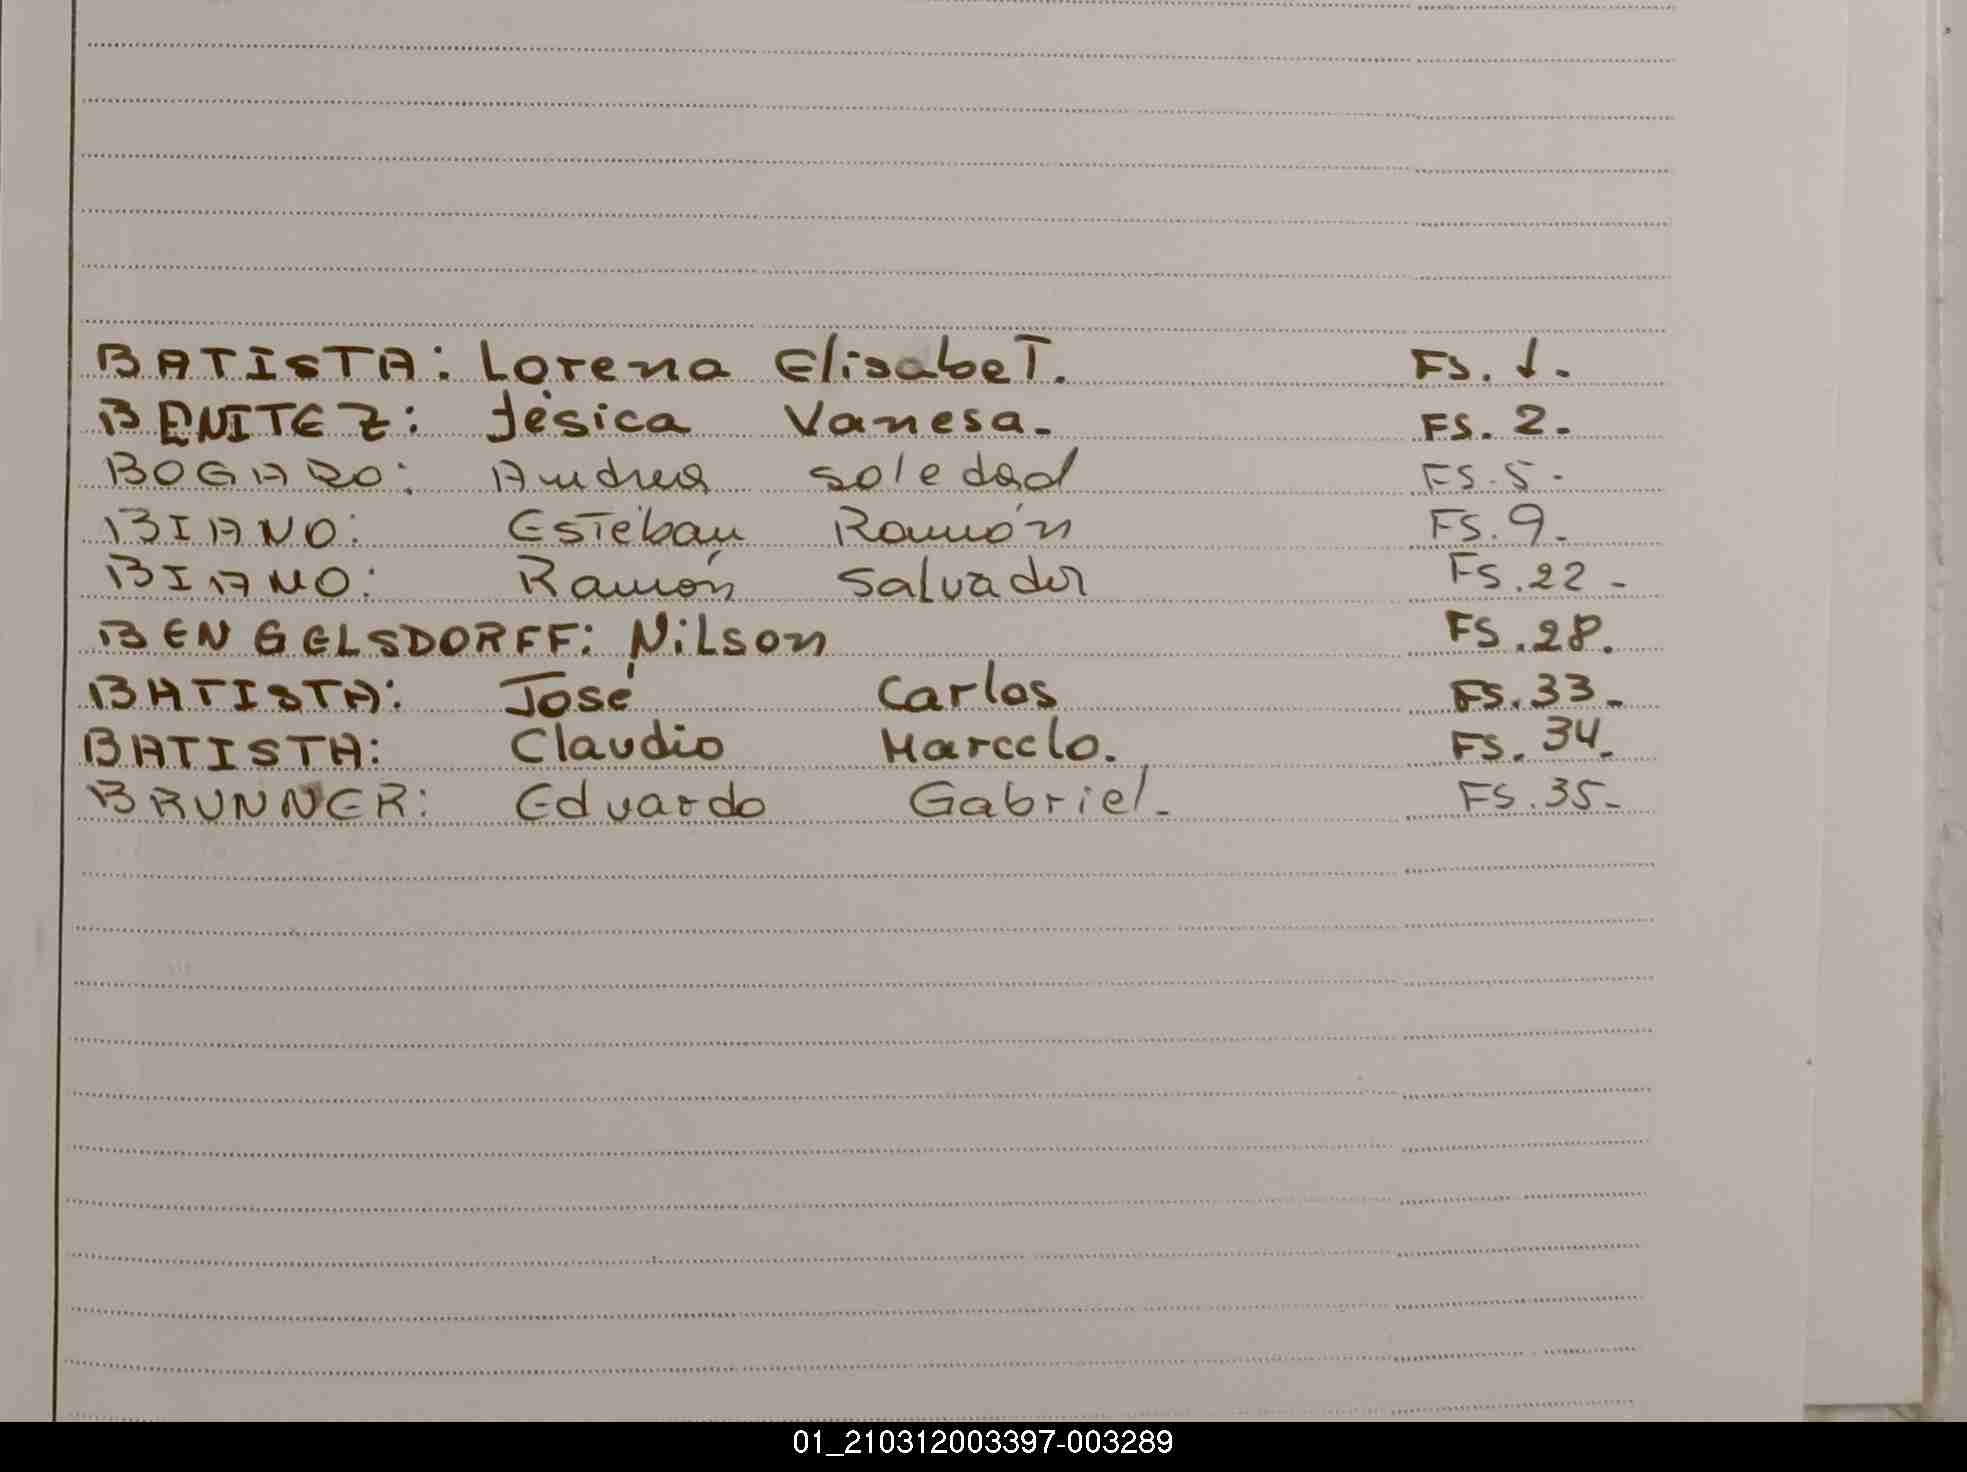 BATISTA: Lorena Elisabet. Fs. 1.
BENITEZ: Jésica Vanesa. Fs. 2.
BOGARO: Andrea Soledad Fs. 5.
BIANO: Estéban Ramón Fs. 9.
BIANO: Ramón Salvador Fs. 22 -
BENGELSDORFF: Nilson Fs. 28.
BATISTA: José Carlos Fs. 33.
BATISTA: Claudio Marcelo. Fs. 34.
BRUNNER: Eduardo Gabriel. Fs. 35.
01_210312003397-003289